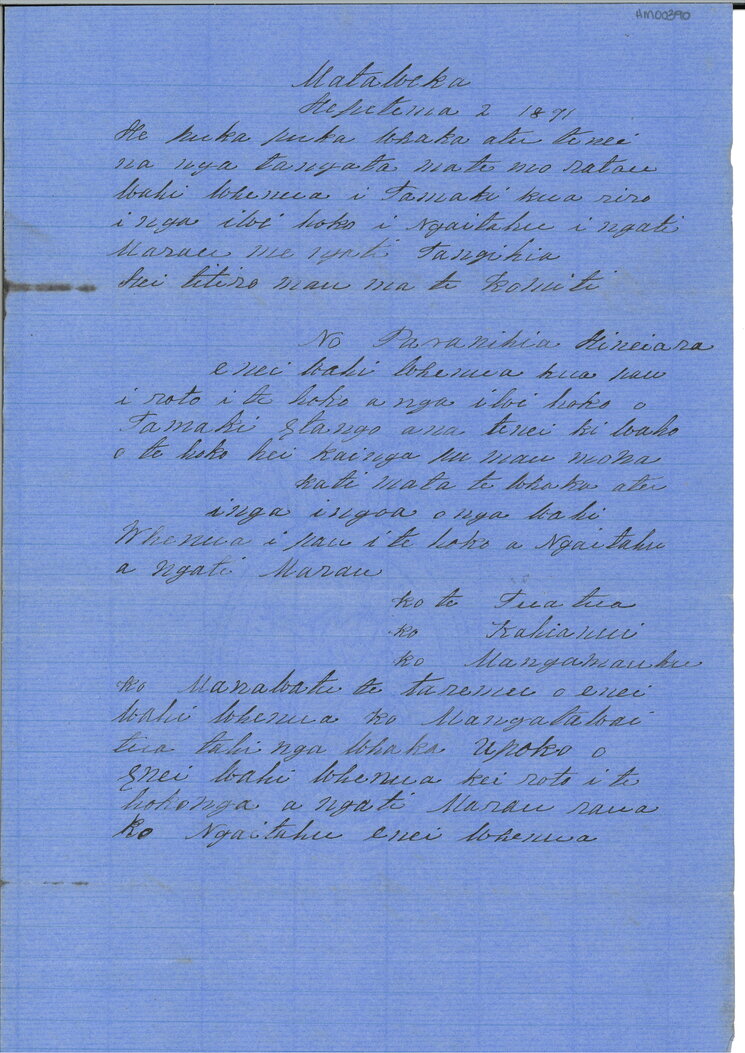 AM00390
Matalveka
Hepetema 2 1891
He puka puka whaka atu tenei
na nga tangata mate mo ratau
wahi whenua i Tamaki kua riro
i nga iwi hoko i Ngaitahu i ngati
Marau me ngati Tangihia
Hei titiro mau ma te Komiti
No Paranihia Hineiara
enei wahi whenua kua pau
i roto i te hoko a nga iwi hoko o
Tamaki ana tenei ki waho
o te hoko hei kainga pu mau mona
kati mata te whaka atu
i nga ingoa o nga wahi
Whenua i pau i te hoko a Ngaitahu
a ngati Marau
ko te Tuatua
ko Kahianui
ko
ko Manawatu te taremu o enei
wahi whenua ko Mangatawai
tua tahi nga whaka Upoko o
Enei wahi whenua kei roto i te
hokonga a ngati Marau raua
ko Ngaitahu enei whenua